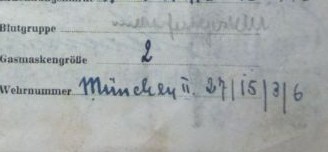 Blutgruppe
Gasmaskengröße 2
Wehrnummer München II. 27/15/3/6